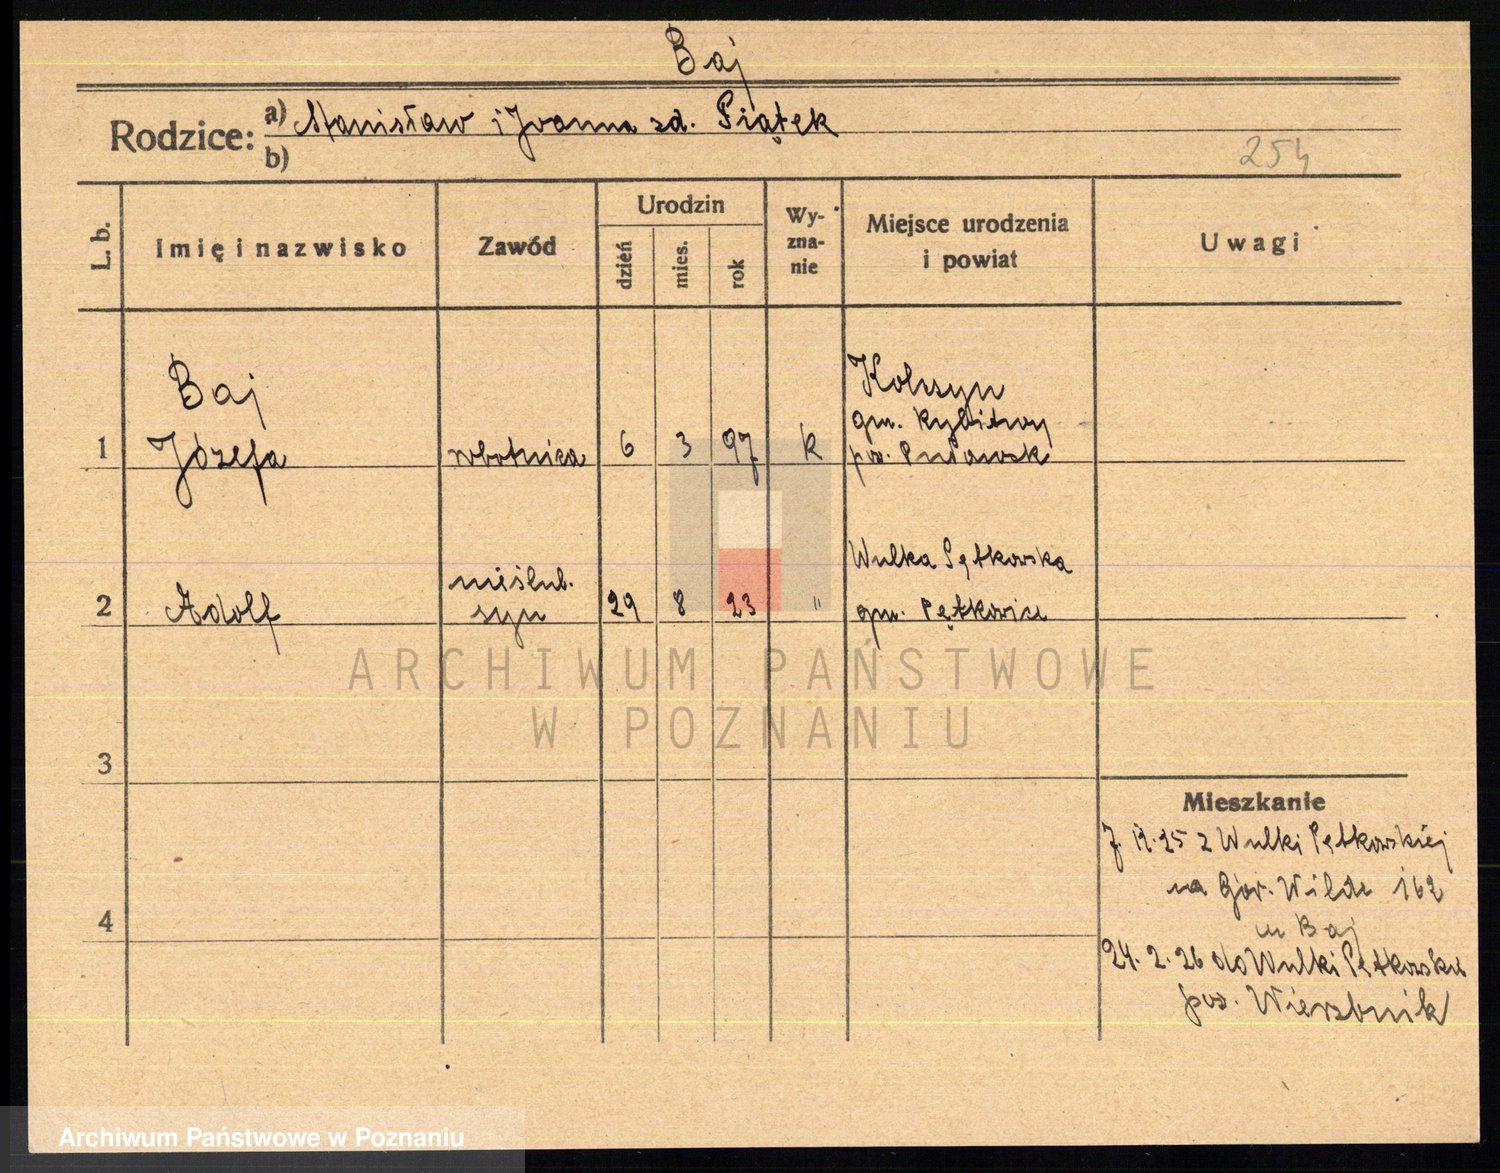 Baj
Rodzice: a) Stanisław i Joanna zd. Piątek
b)
254
L. b.
Imię i nazwisko
Zawód
Urodzin
dzień
mies.
rok
Wy-
zna-
nie
Miejsce urodzenia
i powiat
Uwagi
Baj
1 Józefa robotnica 6 3 97 k
gm. Rybitwy
pow.
2 Adolf
nieślub.
syn
29 8 23 "
Wulka Pętkowska
gm. Pętkowice
3
4
Mieszkanie
25 z Wulki Pętkowskiej
na Gór. Wilda 162
u Baj
24. 2. 26 do Wulki Pętkowskiej
pow. Wierzbnik
ARCHIWUM PAŃSTWOWE
W POZNANIU
Archiwum Państwowe w Poznaniu